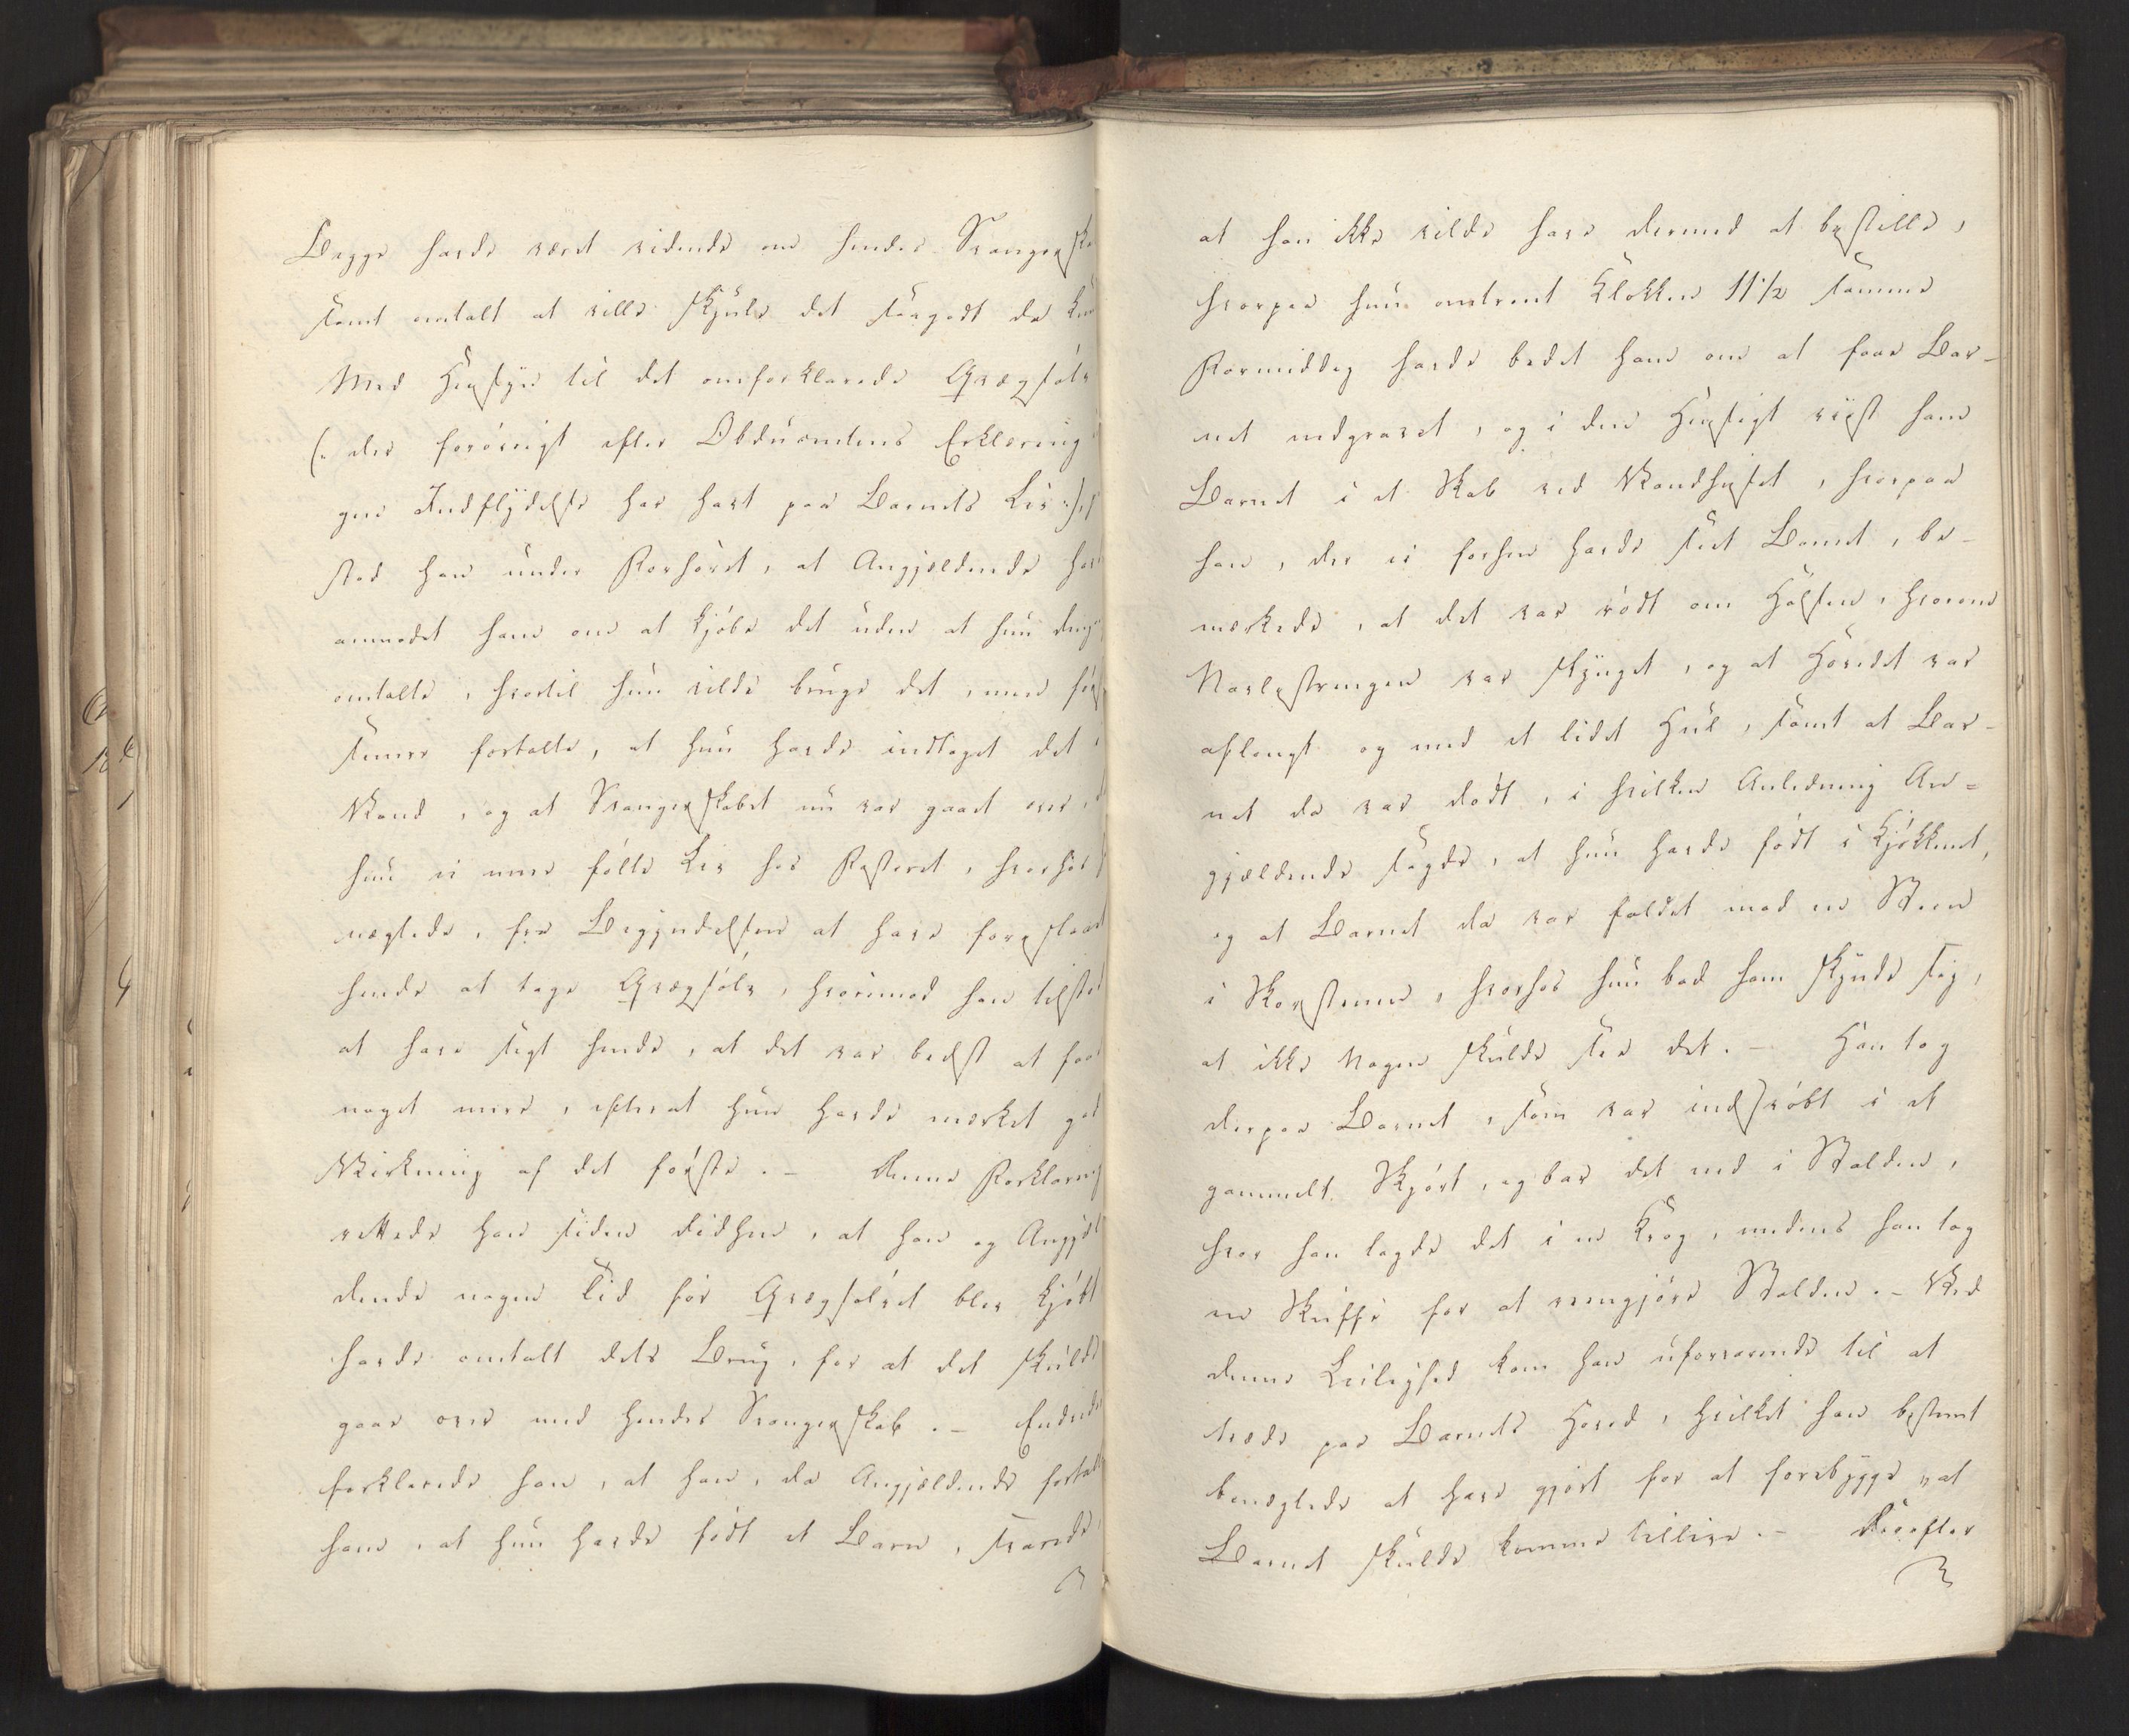 Begge havde været vidende om hendes Svangerska
samt omtalt at ville skjule det saagodt de kun
Med Hensyn til det omforklarede Qvægsølv
(: der forøvrigt efter Obducentens Erklæring
gen Indflydelse har havt paa Barnets Liv :)
stod han under Forhøret, at Angjeldende hav
anmodet ham om at kjøbe det uden at hun deng
omtalte, hvortil hun vilde bruge det, men før
senere fortalte, at hun havde indtaget det i
Vand, og at Svangerskabet nu var gaaet over,
hun ei mere følte Liv hos Fosteret, hvorhos
nægtede, fra Begyndelsen at have foreslaaet
hende at tage Qvægsølv, hvorimod han tilstod
at have sagt hende, at det var bedst at faae
noget mere, efterat hun havde mærket god
Virkning af det første. – Denne Forklaring
rettede han siden didhen, at han og Angjel
dende nogen Tid før Qvægsølvet blev kjøbt
havde omtalt dets Brug, for at det skulde
gaae over med hendes Svangerskab. – Endvidere
forklarede han, at han, da Angjeldende fortalte
ham, at hun havde født et Barn, svarede,
at han ikke vilde have dermed at bestille,
hvorpaa hun omtrent Klokken 11½ samme
Formiddag havde bedet ham om at faae Bar-
net nedgravet, og i den Hensigt viist ham
Barnet i et Skab ved Vandhuset, hvorpaa
han, der ei forhen havde seet Barnet, be-
mærkede, at det var rødt om Halsen, hvorom
Navlestrengen var slynget, og at Hovedet var
aflangt og med et lidet Hul, samt at Bar-
net da var dødt, i hvilken Anledning An-
gjældende sagde, at hun havde født i Kjøkkenet,
og at Barnet da var faldet mod en Steen
i Skorstenen, hvorhos hun bad ham skynde sig,
at ikke Nogen skulde see det. – Han tog
derpaa Barnet, som var indsvøbt i et
gammelt Skjørt, og bar det ned i Stalden,
hvor han lagde det i en Krog, medens han tog
en Skuffe for at reengjøre Stalden. – Ved
denne Leilighed kom han uforvarende til at
træde paa Barnets Hoved, hvilket han bestemt
benægtede at have gjort for at forebygge, at
Barnet skulde komme tillive. – Derefter